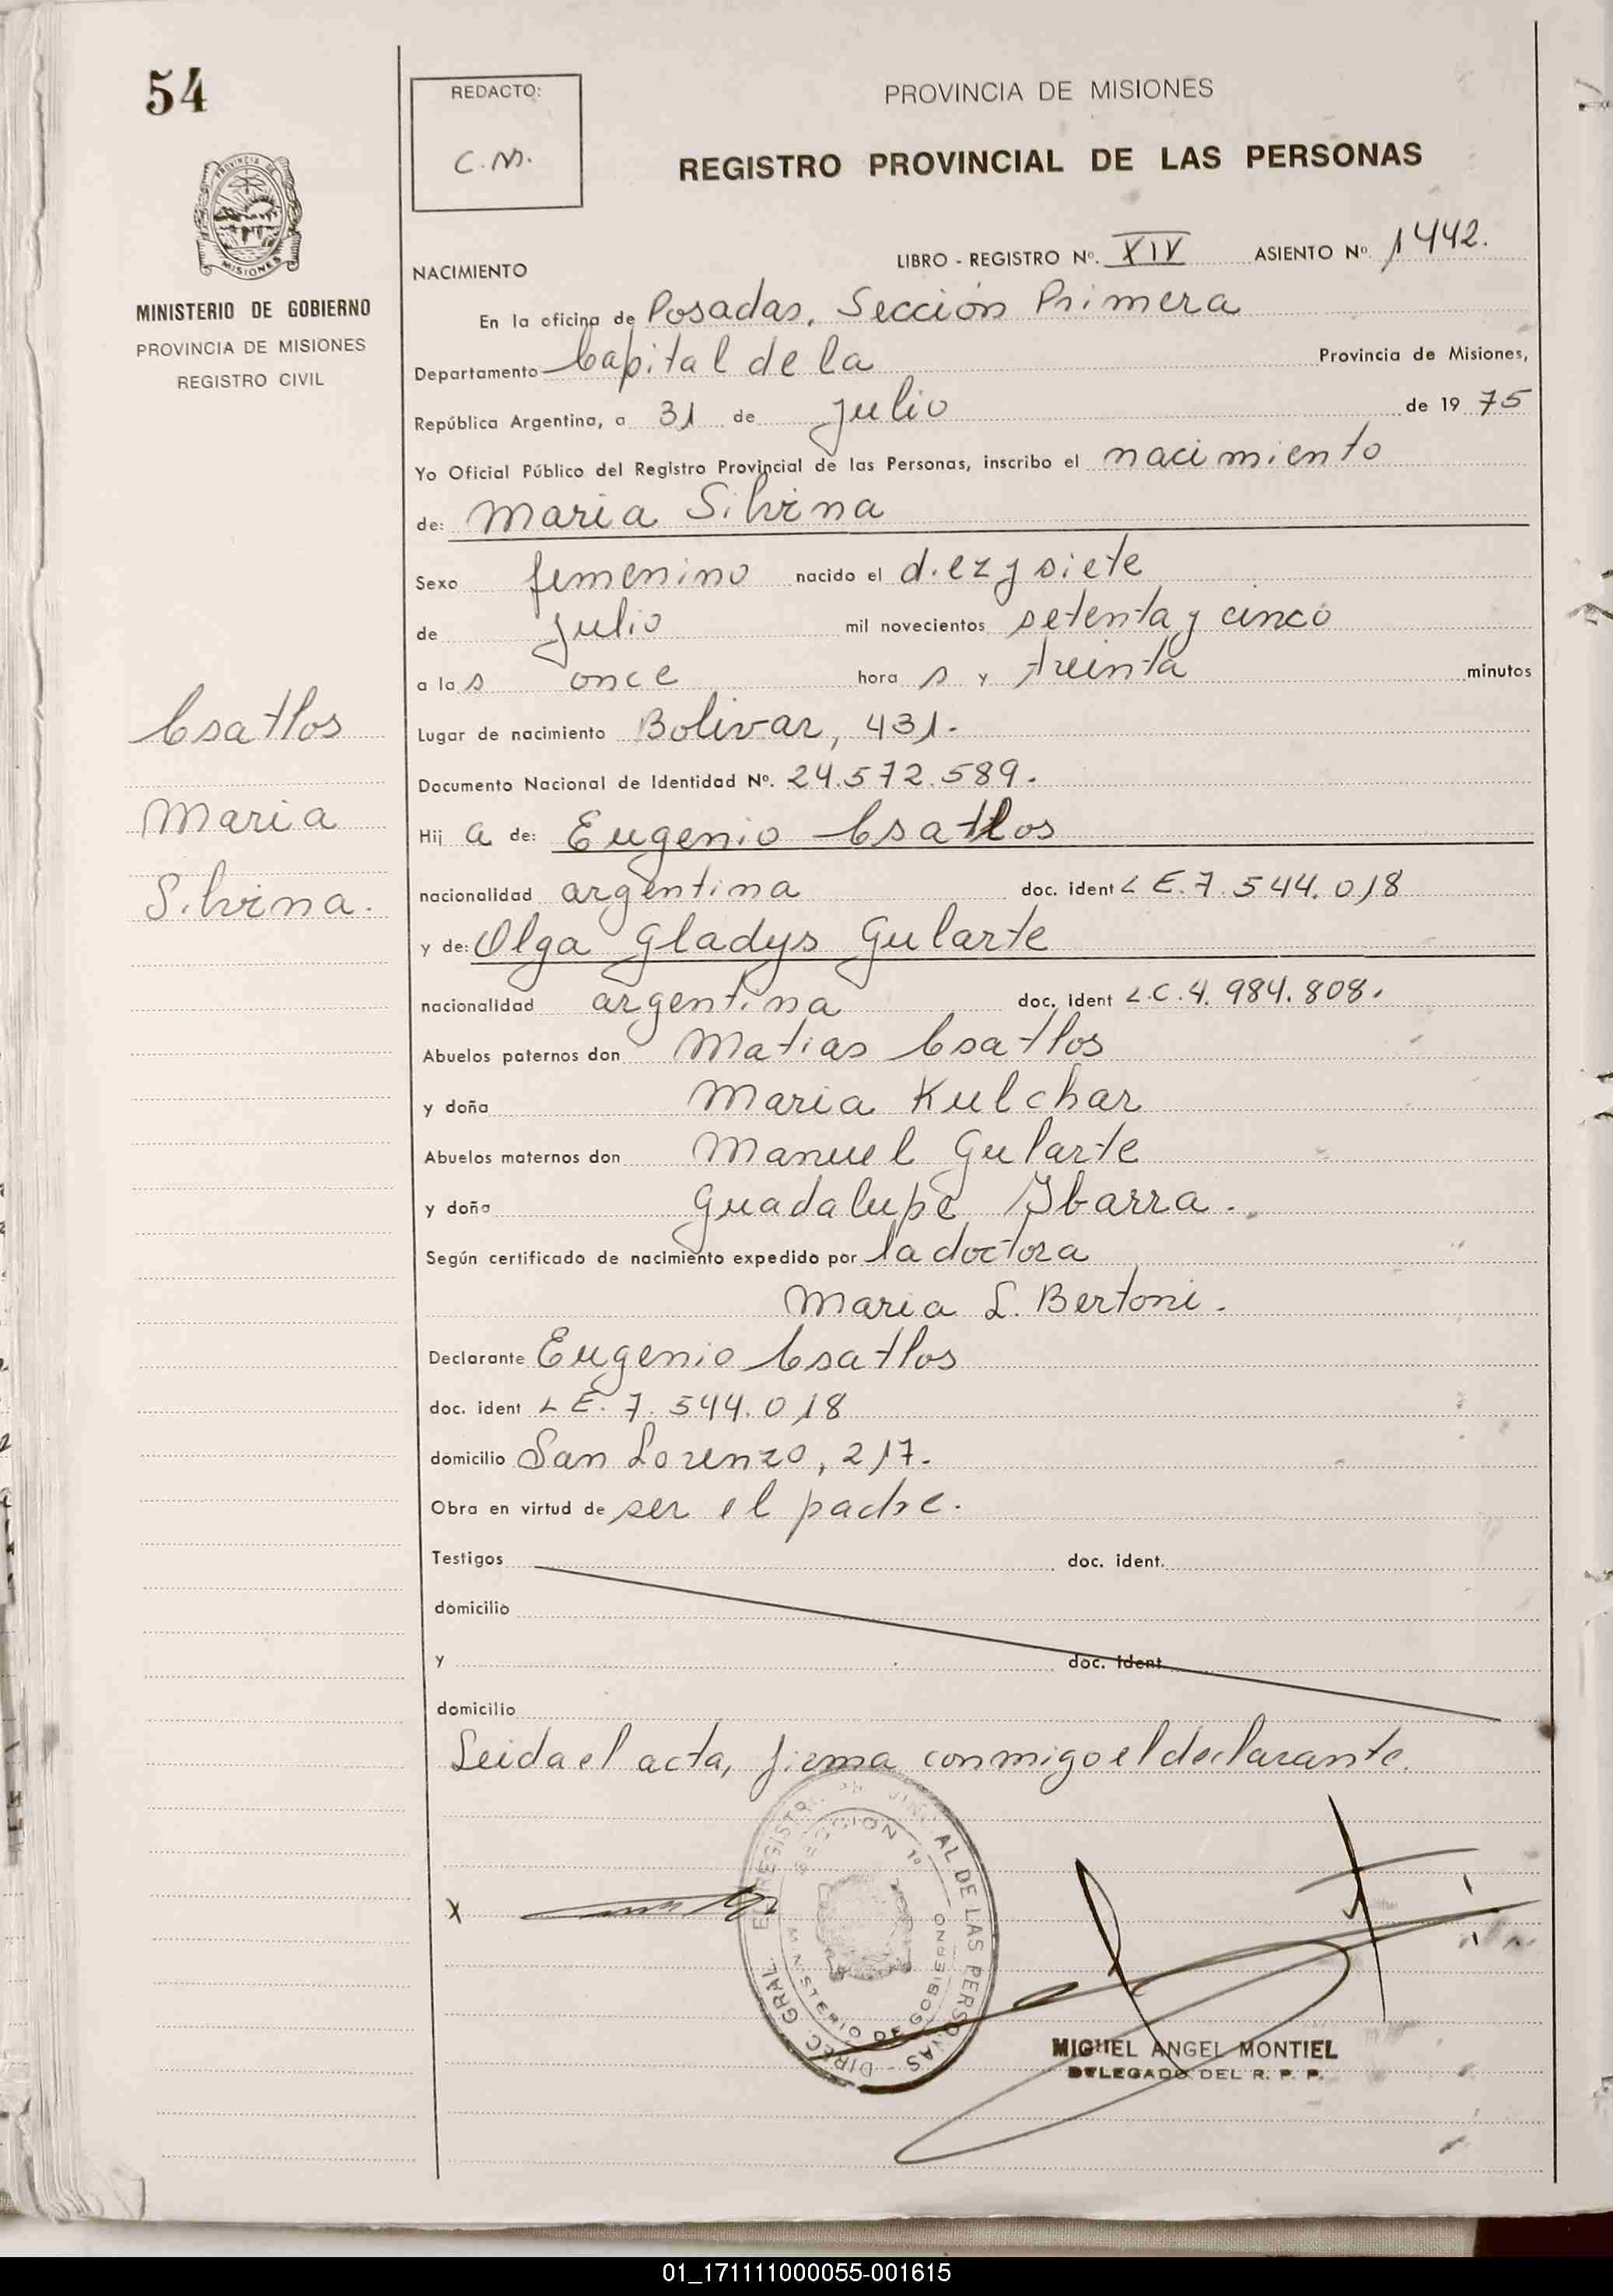 54
REDACTO:
C.M.
PROVINCIA DE MISIONES
REGISTRO PROVINCIAL DE LAS PERSONAS
MISIONES
MINISTERIO DE GOBIERNO
PROVINCIA DE MISIONES
REGISTRO CIVIL
NACIMIENTO
LIBRO - REGISTRO Nº. XIV ASIENTO Nº 1442.
En la oficina de Posadas, Sección Primera
Departamento Capital de la Provincia de Misiones,
República Argentina, a 31 de Julio de 19 75
Yo Oficial Público del Registro Provincial de las Personas, inscribo el nacimiento
de: Maria Silvina
Sexo femenino nacido el diez y siete
de Julio mil novecientos setenta y cinco
a las once horas y treinta minutos
Lugar de nacimiento Bolivar, 431.
Documento Nacional de Identidad Nº. 24.572.589.
Hija de: Eugenio Csatlos
nacionalidad argentina doc. ident L E. 7.544.018
y de: Olga Gladys Gularte
nacionalidad argentina doc. ident L.C.4.984.808.
Abuelos paternos don Matias Csatlos
y doña Maria Kulchar
Abuelos maternos don Manuel Gularte
y doña Guadalupe Ibarra.
Según certificado de nacimiento expedido por la doctora
Maria L. Bertoni.
Declarante Eugenio Csatlos
doc. ident L E. 7.544.018
domicilio San Lorenzo, 217.
Obra en virtud de ser el padre.
Testigos doc. ident.
domicilio
y doc. ident
domicilio
Leida el acta, firma conmigo el declarante.
Csatlos
Maria
Silvina.
X
DIREC. GRAL. AL DE LAS PERSONAS
SECCION 1º
MINISTERIO DE GOBIERNO
MIGUEL ANGEL MONTIEL
DELEGADO DEL R. P. P.
01_171111000055-001615